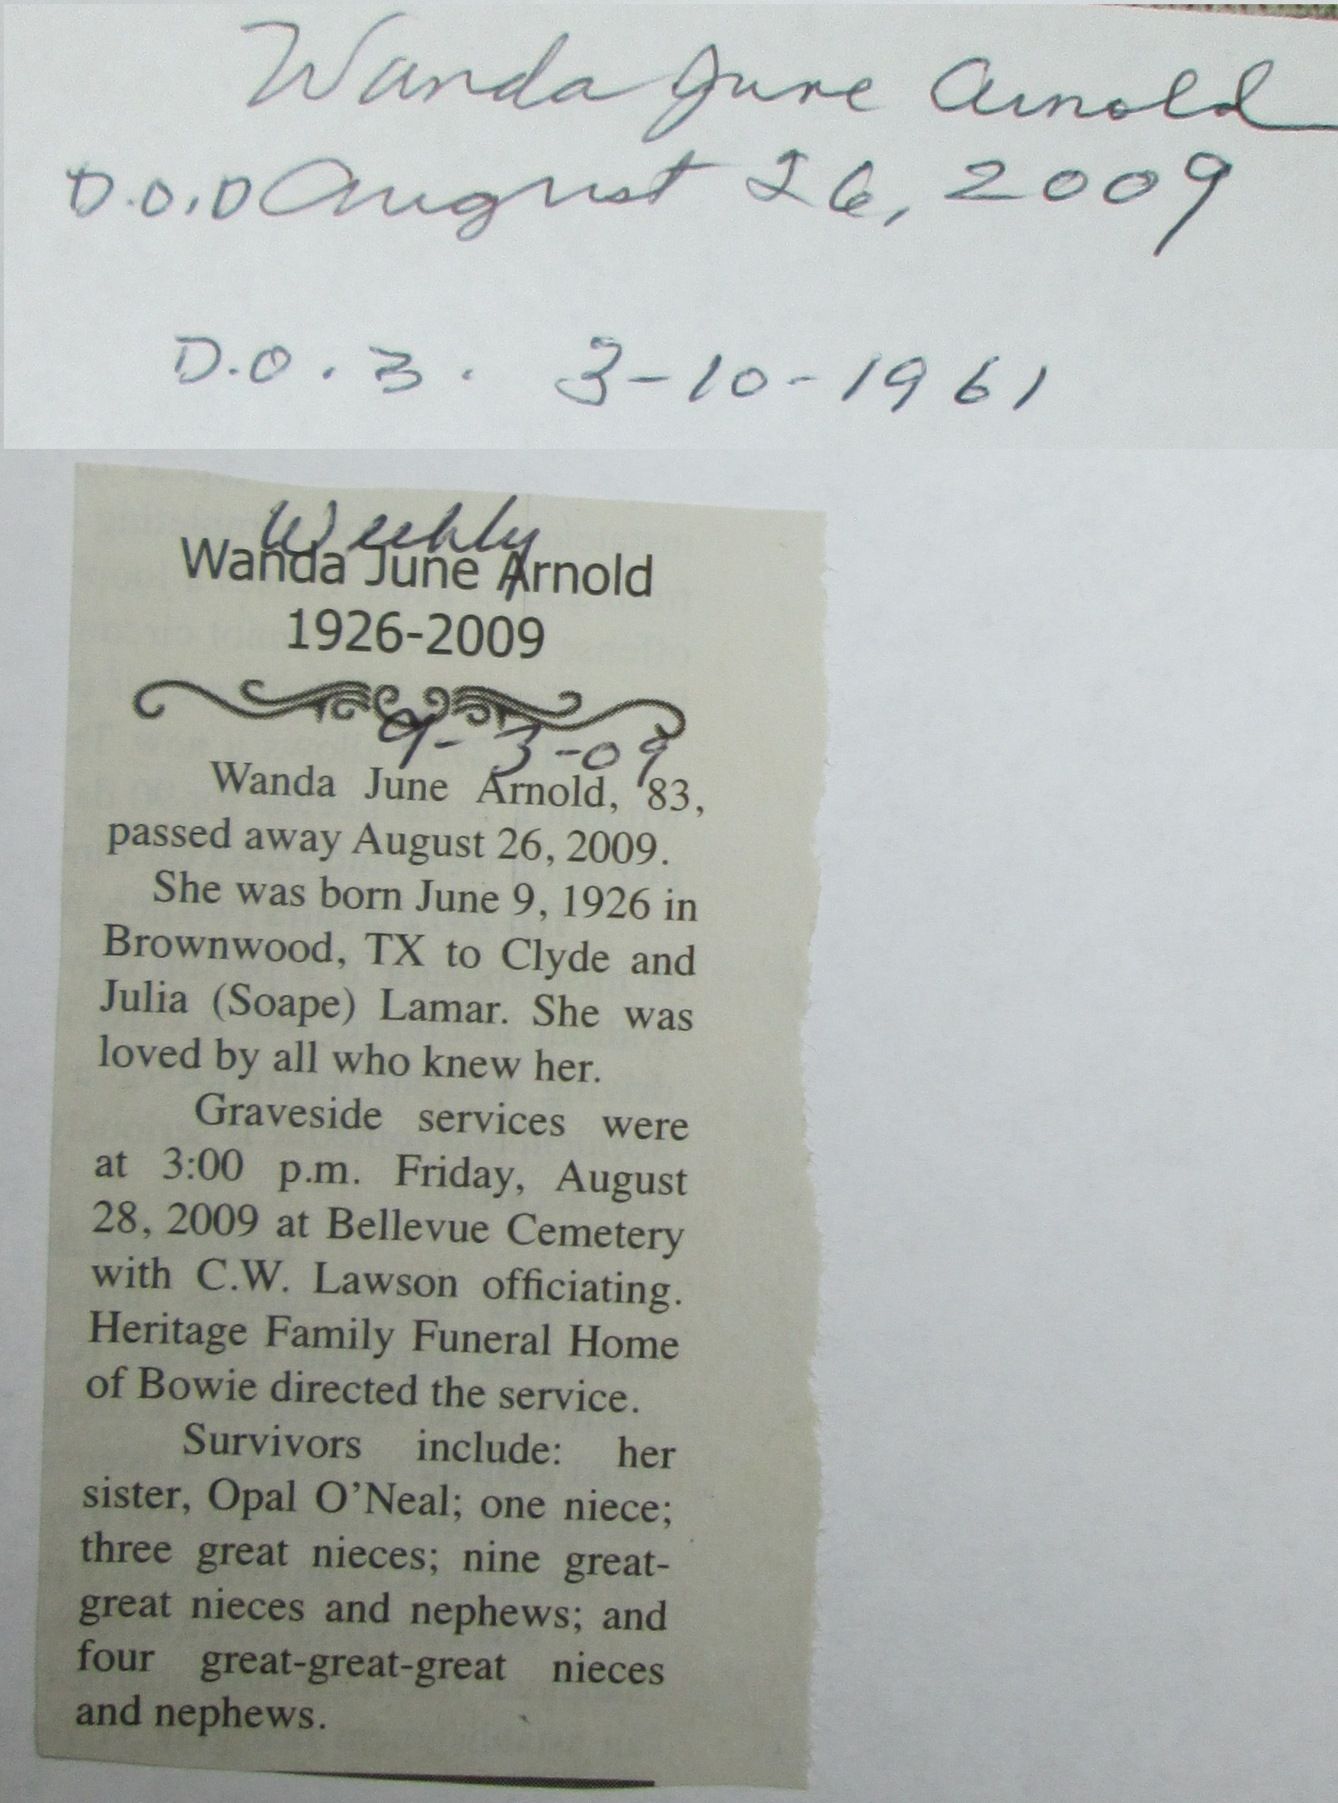 Wanda June Arnold
D.O.D August 26, 2009
D.O.B. 3-10-1961
Weekly
Wanda June Arnold
1926-2009
9-3-09
Wanda June Arnold, 83,
passed away August 26, 2009.
She was born June 9, 1926 in
Brownwood, TX to Clyde and
Julia (Soape) Lamar. She was
loved by all who knew her.
Graveside services were
at 3:00 p.m. Friday, August
28, 2009 at Bellevue Cemetery
with C.W. Lawson officiating.
Heritage Family Funeral Home
of Bowie directed the service.
Survivors include: her
sister, Opal O'Neal; one niece;
three great nieces; nine great-
great nieces and nephews; and
four great-great-great nieces
and nephews.